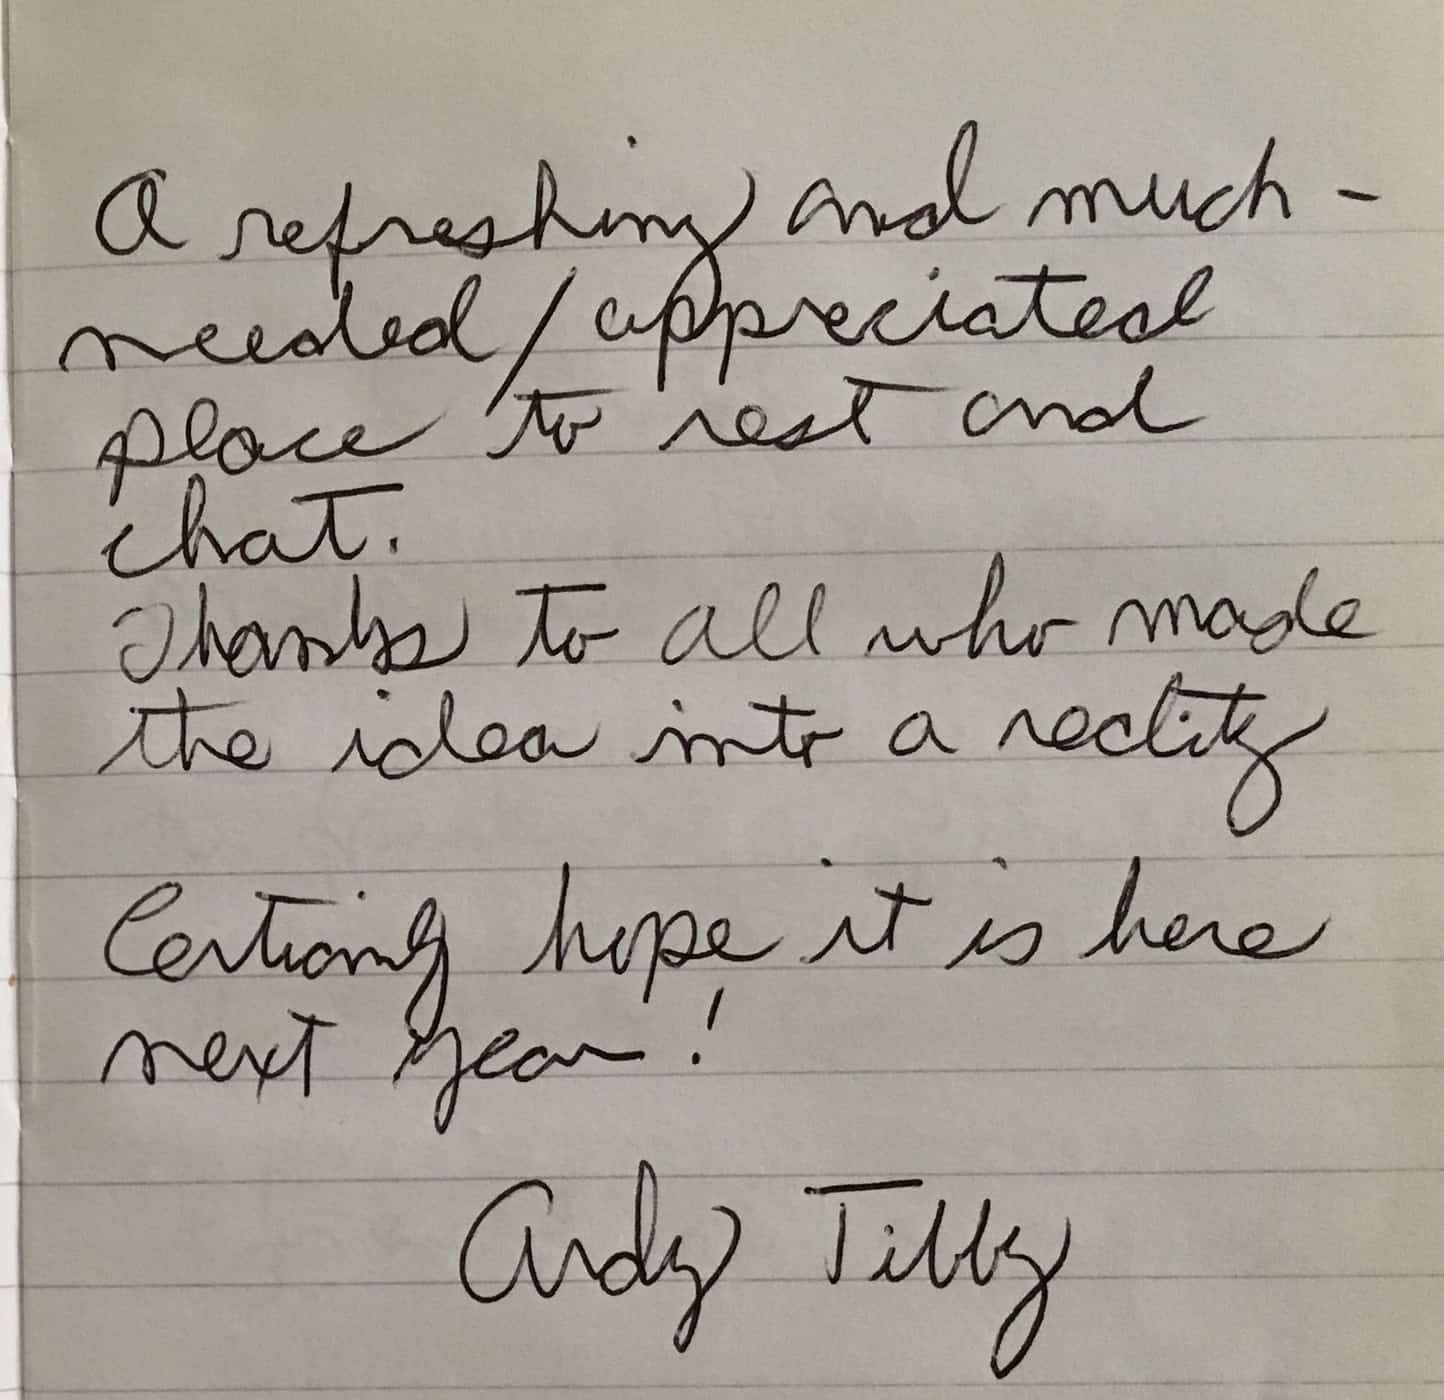 A refreshing and much-
needed/appreciated
place to rest and
chat.
Thanks to all who made
the idea into a reality
Certainly hope it is here
next year!
Andy Tilly